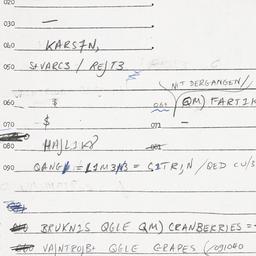 020
030 —
040 KARS7N,
050 S+VARCS / REJT3
NIT DERGANGEN/
060 $ 061 QM) FARTIK
070 $ 071 —
080 HAJLIKY 081
090 QANG = L1M3N3 = C1TR,N / QED CU/S
BRUKN2S QGLE QM) CRANBERRIES =
VAJNTROJB+ QGLE GRAPES